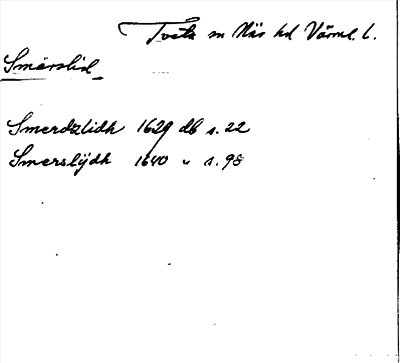 Tveta sn Näs hd Värml. l.
Smärslid
Smerdzlidh 1629 db s. 22
Smerslijdh 1640 " s. 98